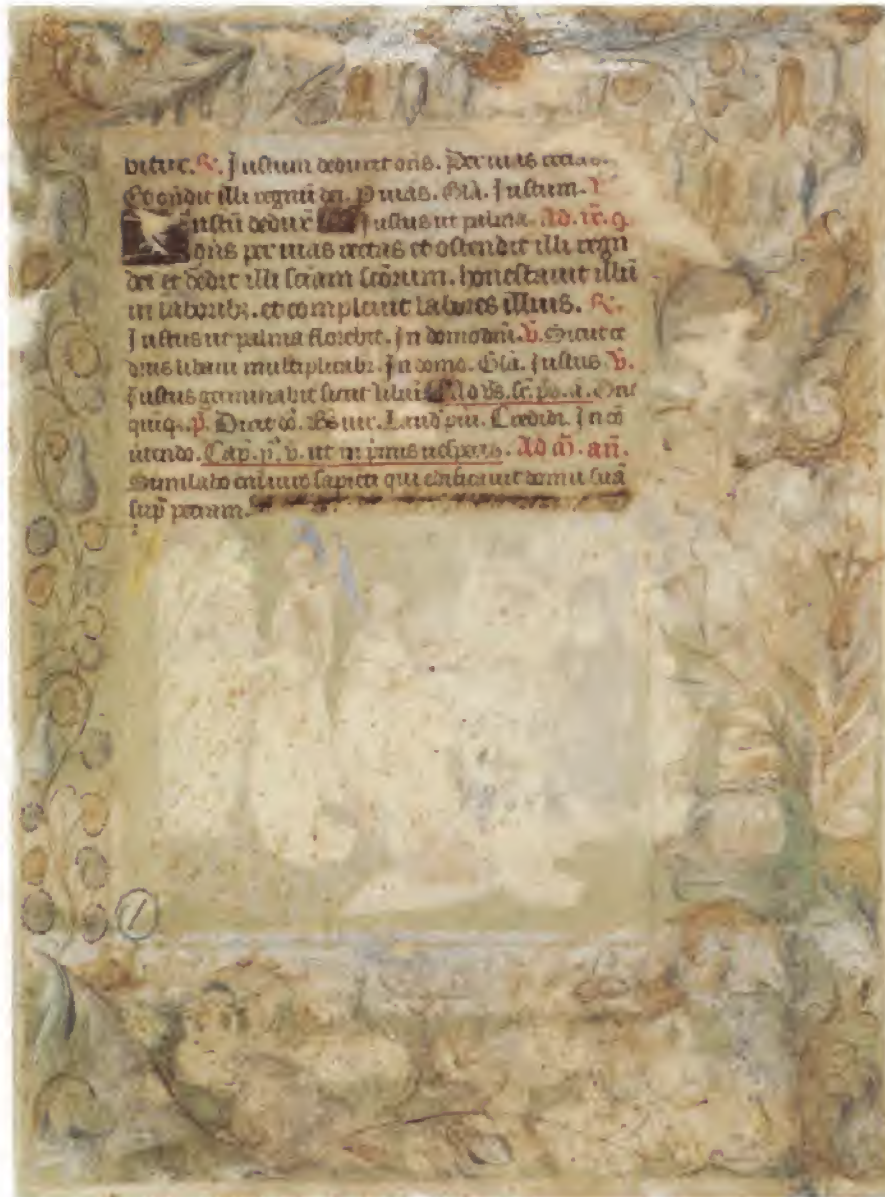 bitur. R. Justum deduxit dns. Per vias rectas.
Et ondit illi regnū dei. P vias. Glā. Justum. V
Justū deduxt Justus ut palma. Ad. ix. q.
dns per vias rectas et ostendit illi regn
dei et dedit illi sciam scōrum. honestavit illū
in laboribz. et complevit labores illius. R.
Justus ut palma florebit. In domo dni. V. Sicut ce
drus libani multiplicabr. In domo. Glā. Justus V.
Justus germinabit sicut liliū Ad vs. sc. ps. a. Dne
quiqz. p. Dixit dō. Btus vir. Laud' pūi. Credidi. In cō
vertendo. Cap. p. v. ut in primis vesperis. Ad m̄. an̄.
Similabo eum viro sapienti qui edificavit domū suā
sup petram.
1